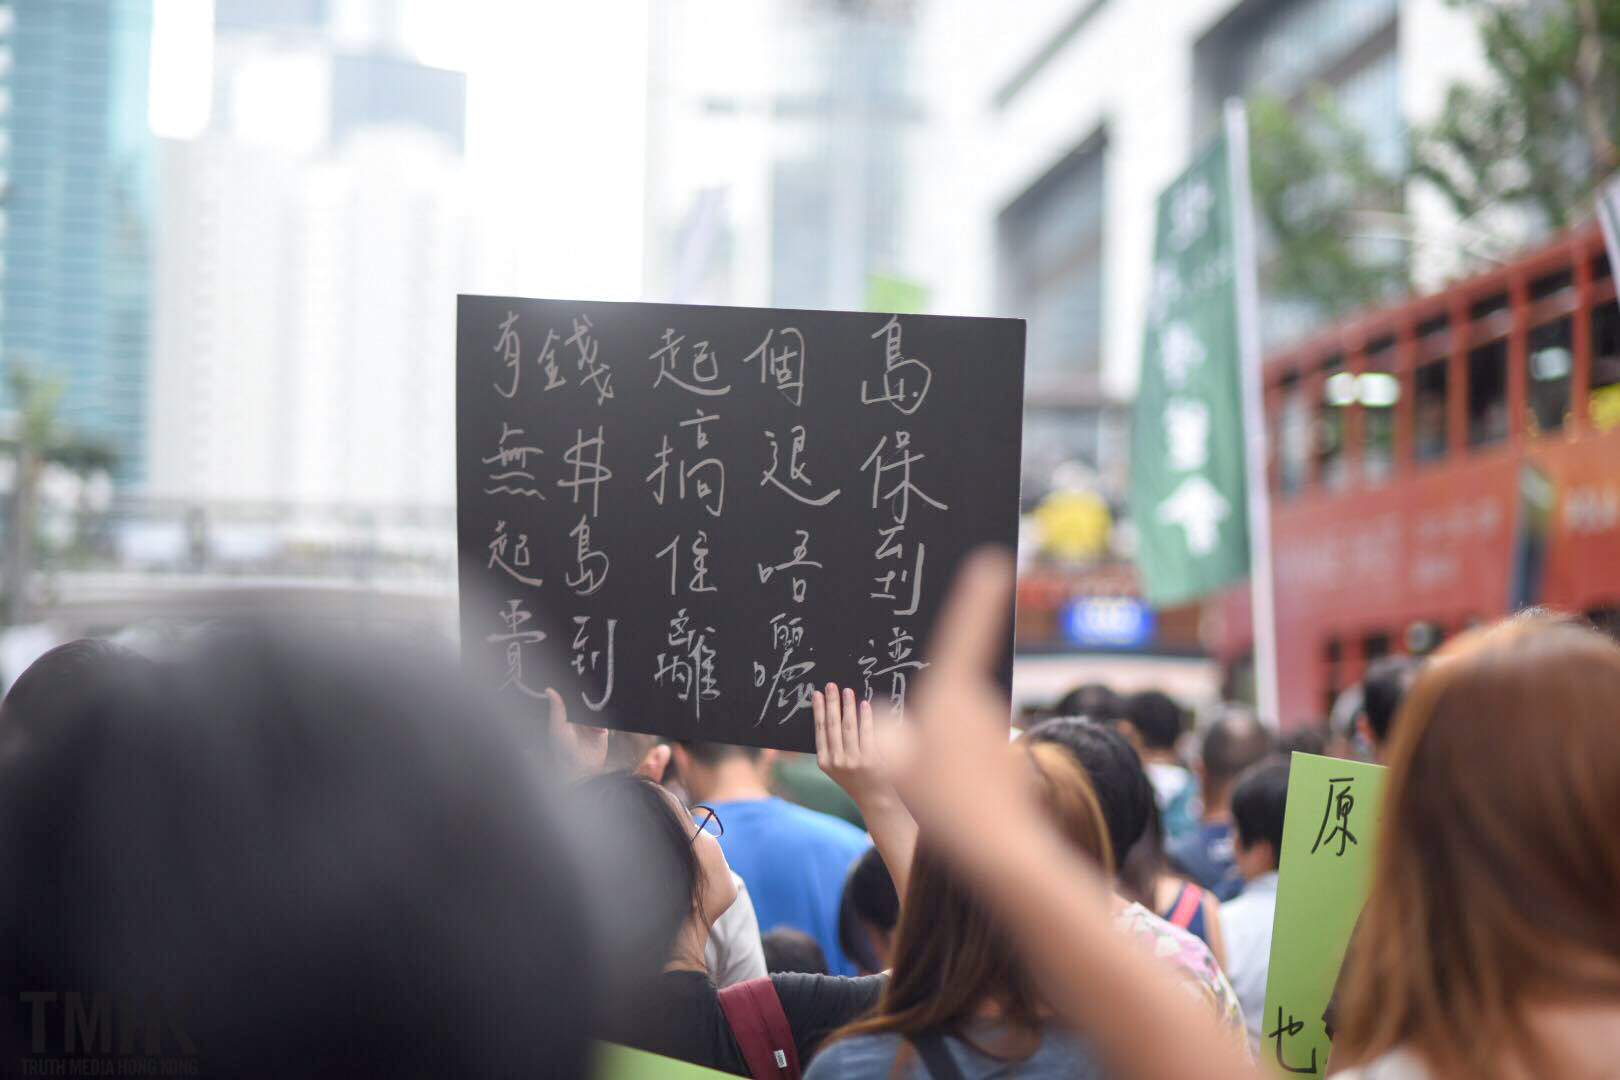 有錢起個島
無井搞退保
起島住唔到
貴到離曬譜
原
也
TMHK
TRUTH MEDIA HONG KONG